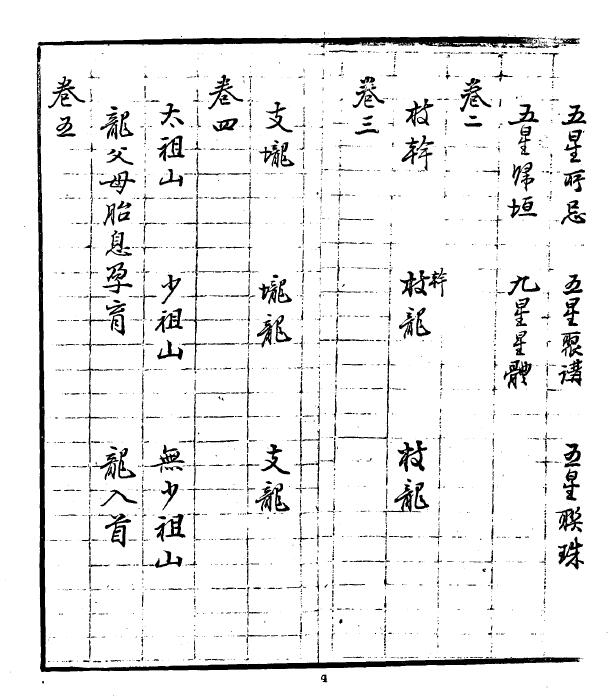 五星所忌 五星聚講 五星聯珠
五星歸垣 九星星體
卷二
枝幹 幹枝龍 枝龍
卷三
支壠 壠龍 支龍
卷四
太祖山 少祖山 無少祖山
龍父母胎息孕育 龍入首
卷五